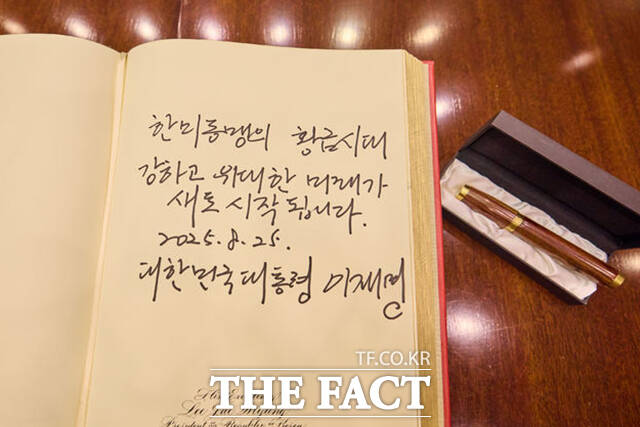 한미동맹의 황금시대
강하고 위대한 미래가
새로 시작됩니다.
2025. 8. 25.
대한민국 대통령 이재명
TF.CO.KR
THE FACT
His Excellency
Lee Jae Myung
President of the Republic of Korea